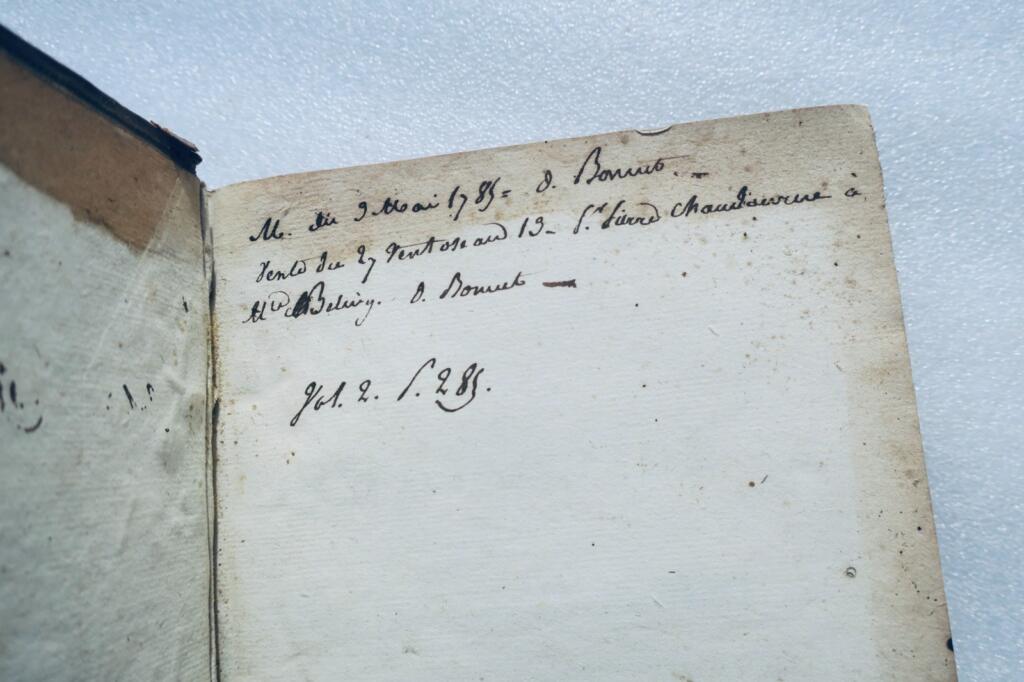 M. du 9 Mai 1785= d. Bonnet. —
Vente du 27 Ventose an 13 — Sr. Pierre à
Md. d. Bonnet —
Vol. 2. P. 285.